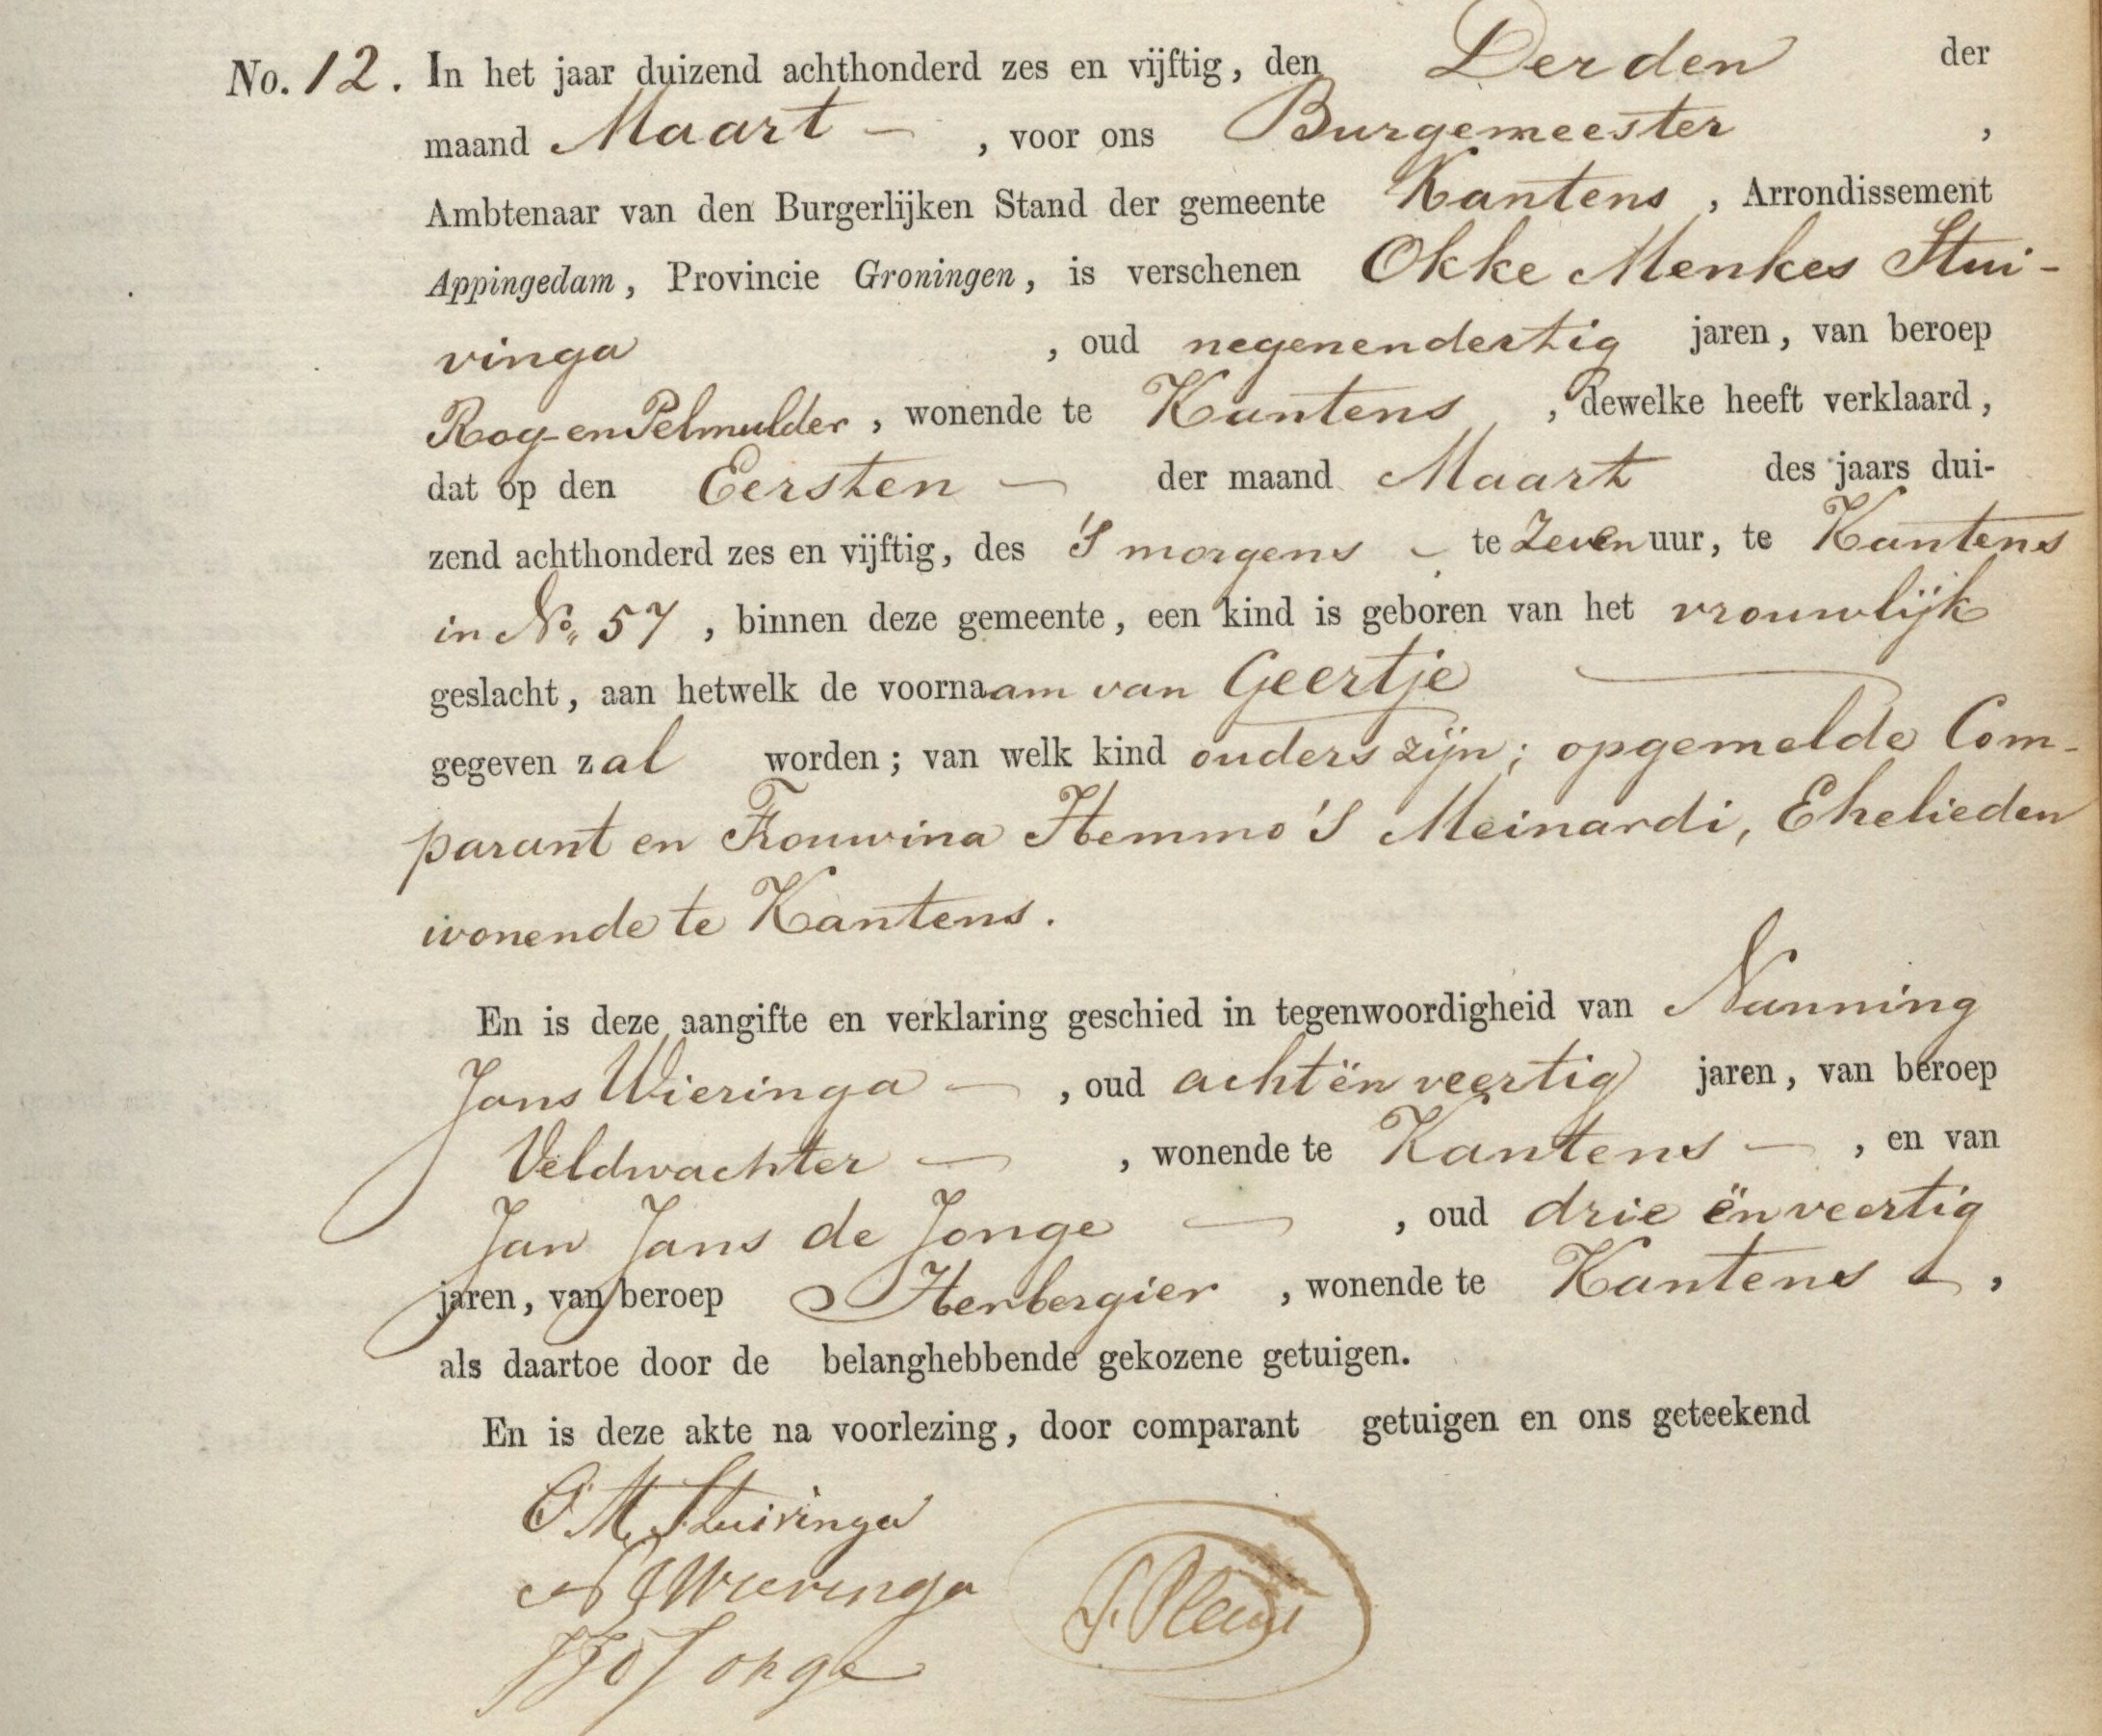 No. 12. In het jaar duizend achthonderd zes en vijftig, den Derden der
maand Maart — , voor ons Burgemeester ,
Ambtenaar van den Burgerlijken Stand der gemeente Kantens , Arrondissement
Appingedam, Provincie Groningen, is verschenen Okke Menkes Stui-
vinga , oud negenendertig jaren, van beroep
Rog- en Pelmulder , wonende te Kantens , dewelke heeft verklaard,
dat op den Eersten — der maand Maart des jaars dui-
zend achthonderd zes en vijftig, des 's morgens – te Zeven uur, te Kantens
in No. 57 , binnen deze gemeente, een kind is geboren van het vrouwlijk
geslacht, aan hetwelk de voornaam van Geertje —
gegeven zal worden; van welk kind ouders zijn; opgemelde Com-
parant en Frouwina Hemmo's Meinardi, Ehelieden
wonende te Kantens.
En is deze aangifte en verklaring geschied in tegenwoordigheid van Nanning
Jans Wieringa — , oud achtënveertig jaren, van beroep
Veldwachter — , wonende te Kantens — , en van
Jan Jans de Jonge — , oud drie ënveertig
jaren, van beroep Herbergier , wonende te Kantens — ,
als daartoe door de belanghebbende gekozene getuigen.
En is deze akte na voorlezing, door comparant getuigen en ons geteekend
O. M. Stuivinga
N J Wieringa
J J d Jonge